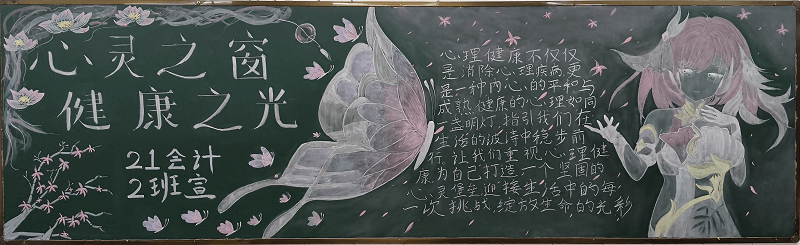 心灵之窗
健康之光
21会计
2班宣
心理健康不仅仅
是消除心理疾病,更
是一种内心的平和与
成熟,健康的心理如同
一盏明灯,指引我们在
生活的波涛中稳步前
行,让我们重视心理健
康,为自己打造一个坚固的
心灵堡垒,迎接生活中的每
一次挑战,绽放生命的光彩